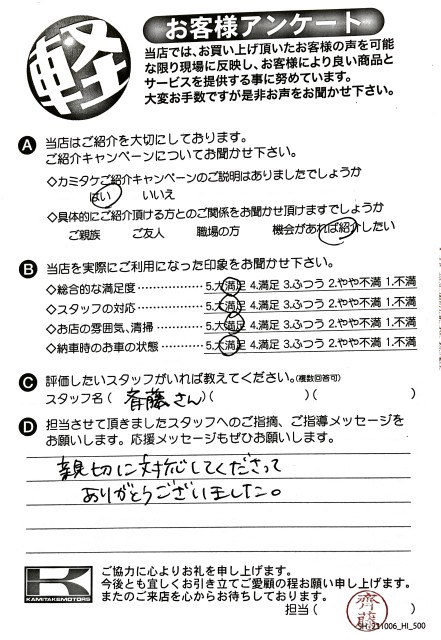 軽
お客様アンケート
当店では、お買い上げ頂いたお客様の声を可能
な限り現場に反映し、お客様により良い商品と
サービスを提供する事に努めています。
大変お手数ですが是非お声をお聞かせ下さい。
A 当店はご紹介を大切にしております。
ご紹介キャンペーンについてお聞かせ下さい。
◇カミタケご紹介キャンペーンのご説明はありましたでしょうか
はい いいえ
◇具体的にご紹介頂ける方とのご関係をお聞かせ頂けますでしょうか
ご親族 ご友人 職場の方 機会があれば紹介したい
B 当店を実際にご利用になった印象をお聞かせ下さい。
◇総合的な満足度 …………… 5.大満足 4.満足 3.ふつう 2.やや不満 1.不満
◇スタッフの対応 …………… 5.大満足 4.満足 3.ふつう 2.やや不満 1.不満
◇お店の雰囲気、清掃 ………… 5.大満足 4.満足 3.ふつう 2.やや不満 1.不満
◇納車時のお車の状態 ………… 5.大満足 4.満足 3.ふつう 2.やや不満 1.不満
C 評価したいスタッフがいれば教えてください。(複数回答可)
スタッフ名 ( 斉藤さん )( )( )
D 担当させて頂きましたスタッフへのご指摘、ご指導メッセージを
お願いします。応援メッセージもぜひお願いします。
親切に対応してくださって
ありがとうございました。
KAMITAKEMOTORS
ご協力に心よりお礼を申し上げます。
今後とも宜しくお引き立てご愛顧の程お願い申し上げます。
またのご来店を心からお待ちしております。
担当 ( 齊藤 )
SH-231006_HI_500